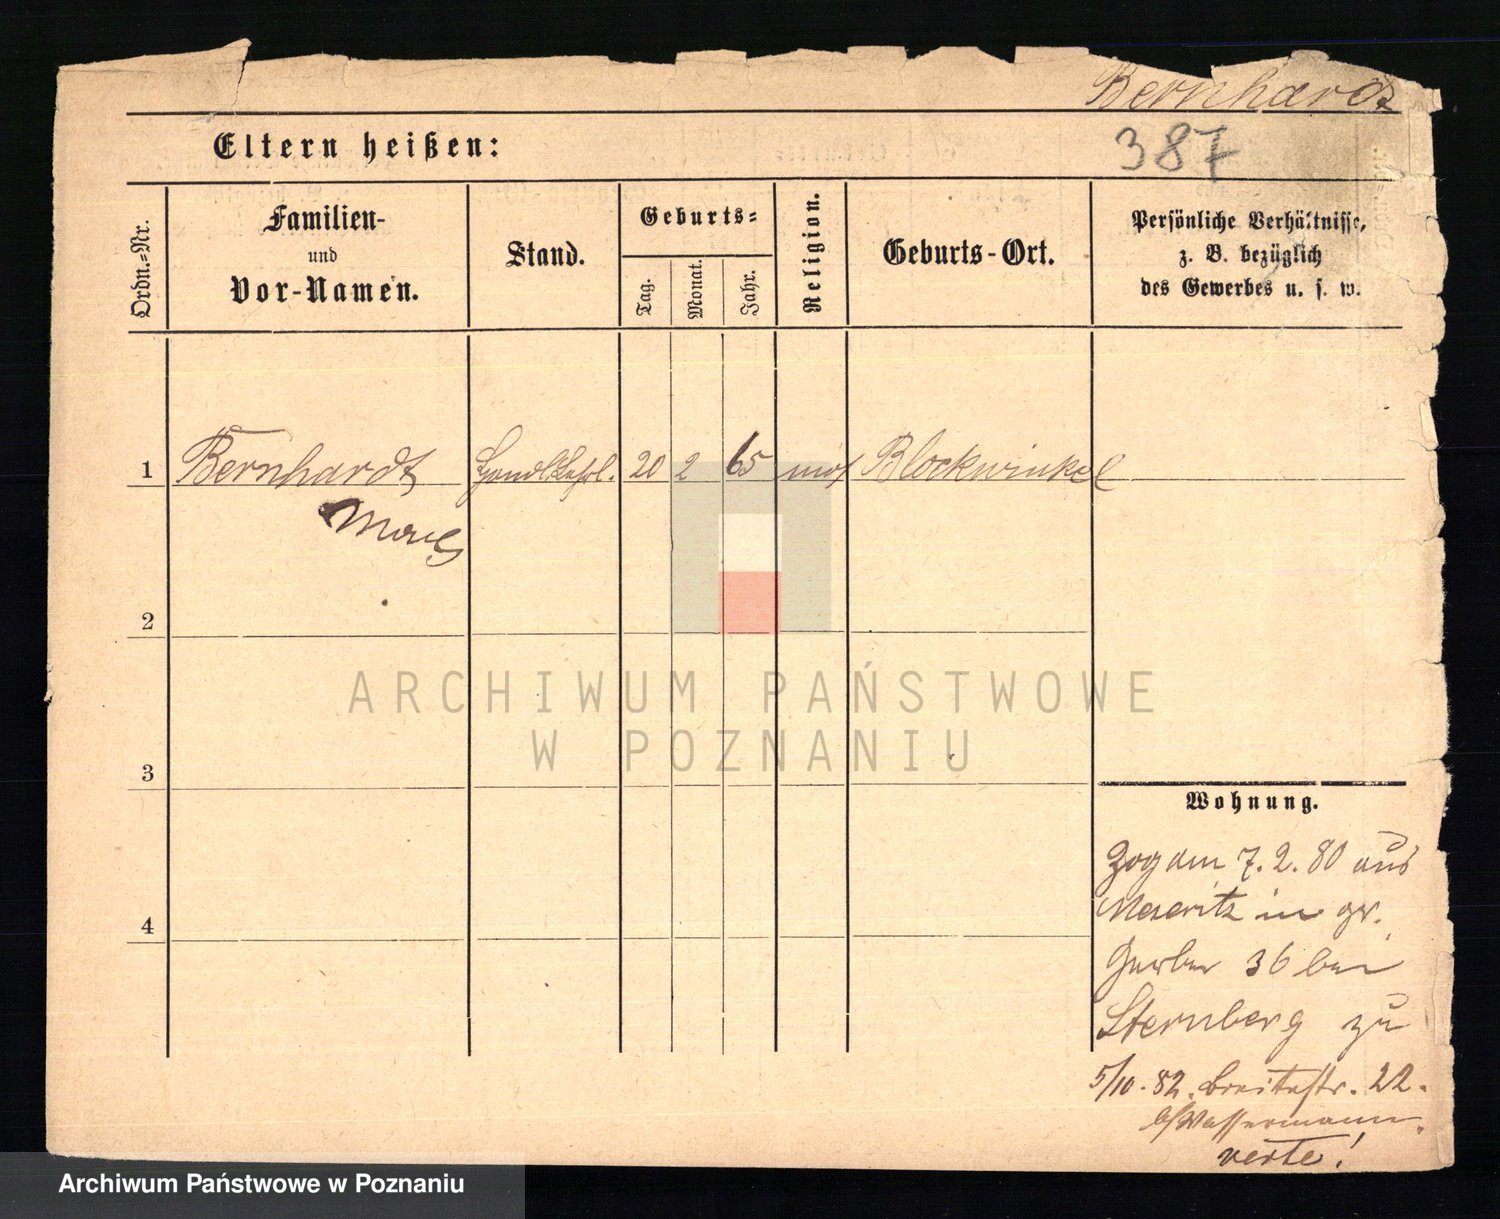 Bernhardt
Eltern heißen:
387
Ordn.=Nr.
Familien-
und
Vor-Namen.
Stand.
Geburts=
Tag.
Monat.
Jahr.
Religion.
Geburts-Ort.
Persönliche Verhältnisse,
z. B. bezüglich
des Gewerbes u. s. w.
1 Bernhardt 20 2 65 mos Blockwinkel
2
3
4
ARCHIWUM PAŃSTWOWE
W POZNANIU
Wohnung.
Zog am 7. 2. 80 aus
Meseritz in gr.
Gerber 36 bei
Sternberg zu
5/10. 82. Breitestr. 22.
b/Wassermann.
verte!
Archiwum Państwowe w Poznaniu